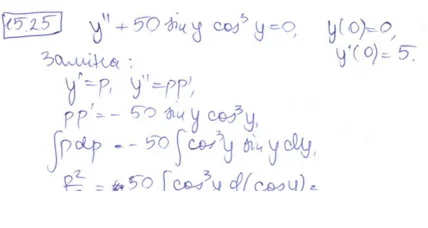 15.25 y'' + 50 sin y cos³y = 0, y(0) = 0,
y'(0) = 5.
Заміна:
y' = p, y'' = pp',
pp' = - 50 sin y cos³y,
∫pdp = - 50 ∫cos³y sin y dy,
p²/2 = 50 ∫cos³y d(cos y) =